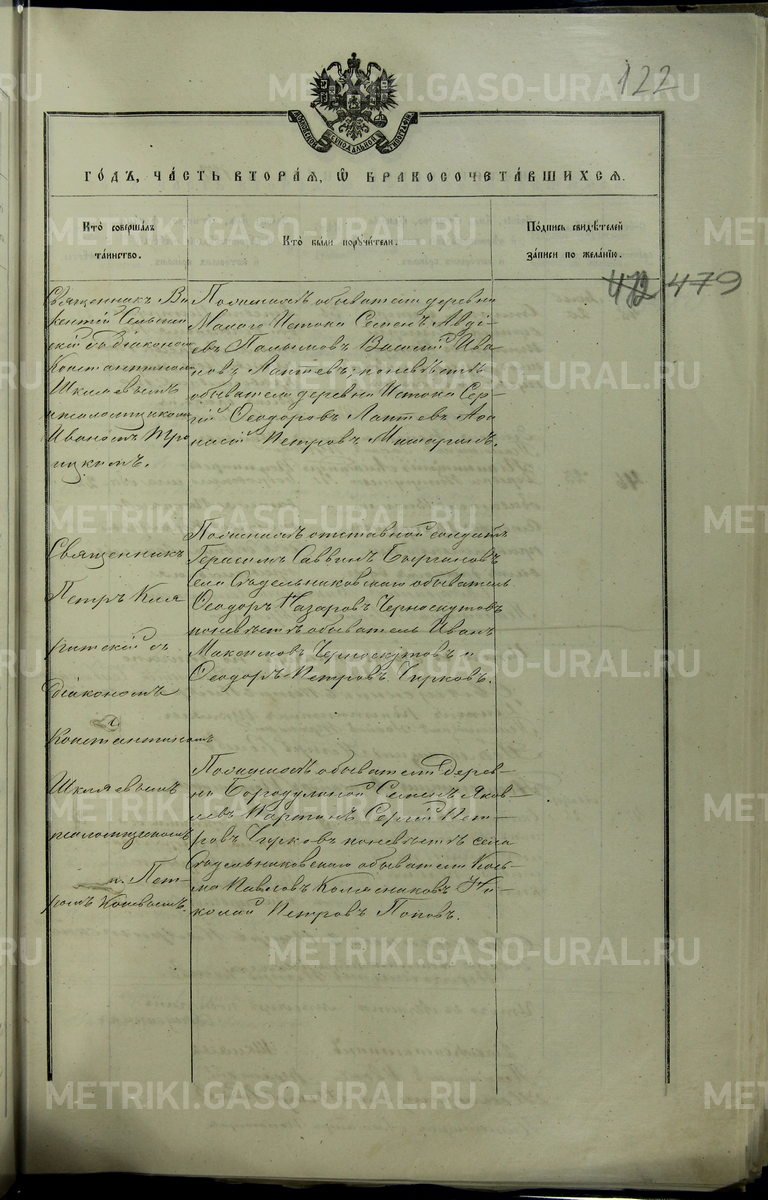 122
МОСКОВСКОЙ СѴНОДАЛЬНОЙ ТИПОГРАФІИ
ГО́ДЪ, ЧА́СТЬ ВТОРА́Я, Ѽ БРАКОСОЧЕТА́ВШИХСЯ.
Кто̀ соверша́лъ
та́инство.
Кто̀ бы́ли поручи́тели.
По́дпись свидѣ́телей
за́писи по жела́нію.
472 479
Священникъ Ви
кентій Сельмен
скій съ діакономъ
Константиномъ
Шкляевымъ
и псаломщикомъ
Иваномъ Тро
ицкимъ.
По женихѣ обыватели деревни
Малаго Истока Семенъ Авді
евъ Палымовъ Василій Ива
новъ Лаптевъ; по невѣстѣ
обыватели деревни Истока Сер
гій Ѳеодоровъ Лаптевъ Аѳа
насій Петровъ Мишаринъ.
Священникъ
Петръ Кля
ритскій съ
діакономъ
Константиномъ
Шкляевымъ
псаломщикомъ
и Пет
ромъ
По женихѣ отставной солдатъ
Герасимъ Саввинъ
села Сѣдельниковскаго обыватель
Ѳеодоръ Назаровъ Черноскутовъ
по невѣстѣ обыватель Иванъ
Максимовъ Черноскутовъ и
Ѳеодоръ Петровъ Чирковъ.
По женихѣ обыватели дерев-
ни Бородулиной Семенъ Яков-
левъ Сергій Пет-
ровъ Чирковъ по невѣстѣ села
Сѣдельниковскаго обыватели Козь-
ма Павловъ Колясниковъ Ни-
колай Петровъ Поповъ.
METRIKI.GASO-URAL.RU